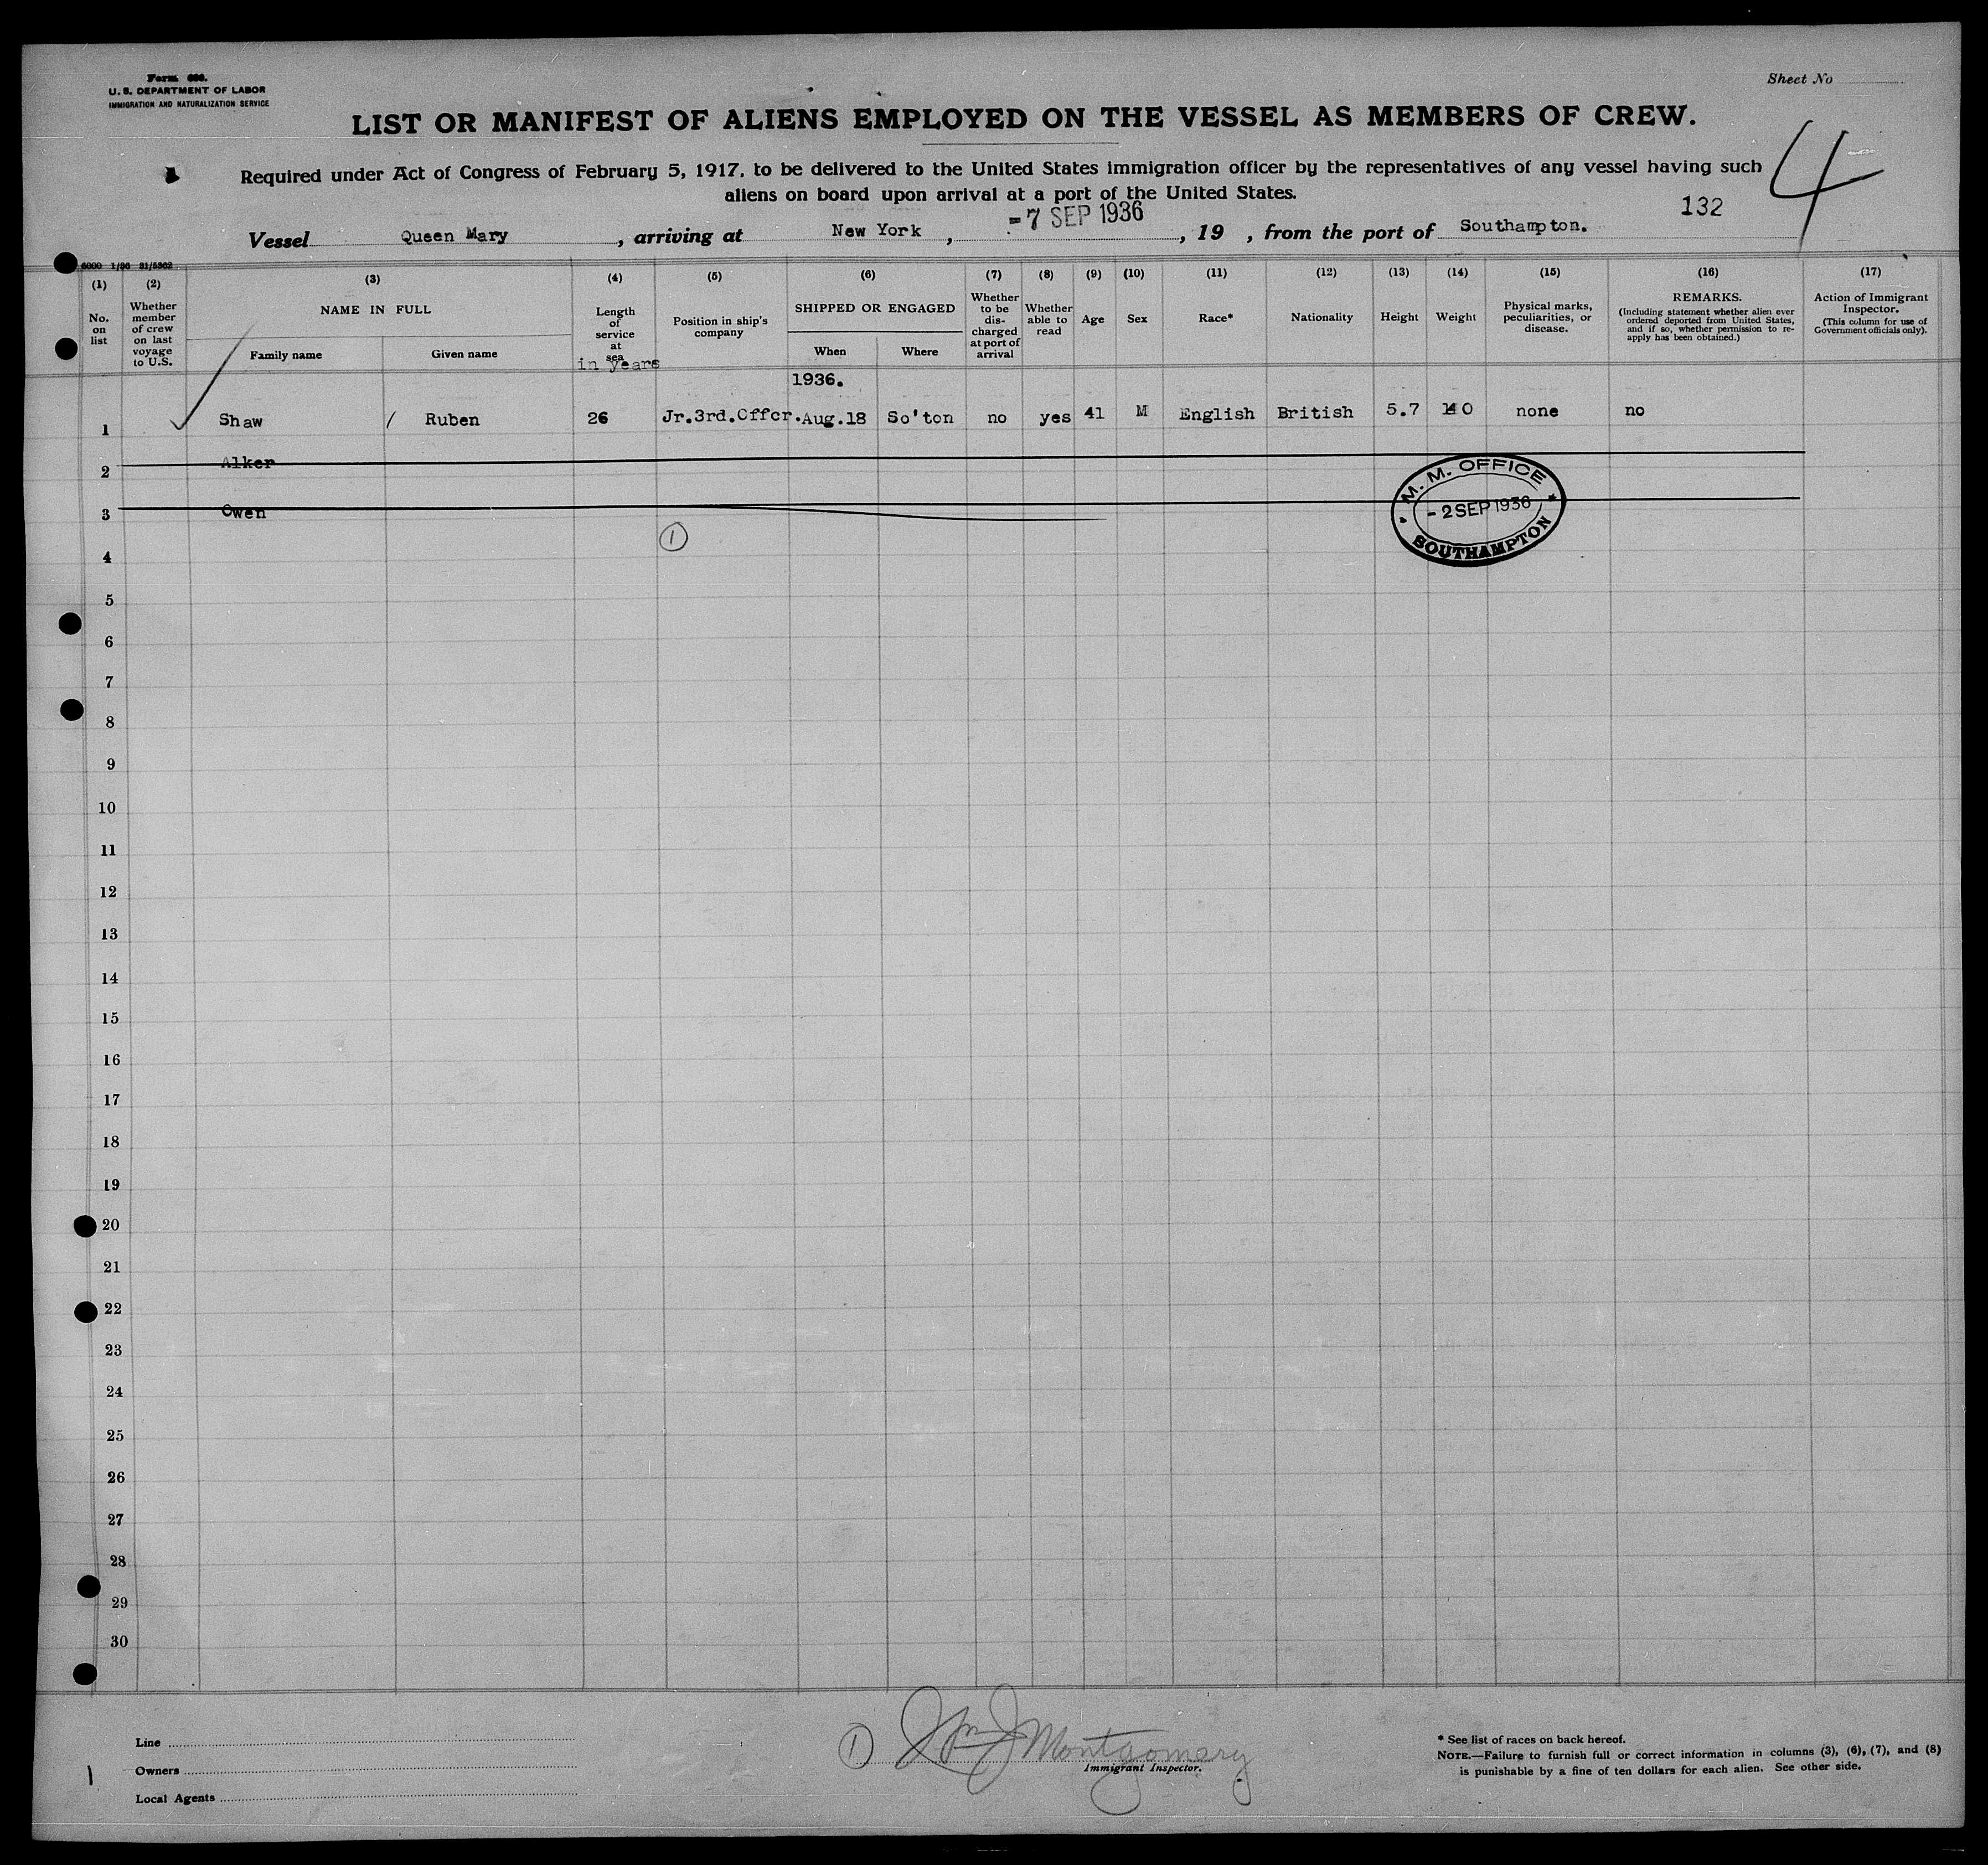 Form 680.
U. S. DEPARTMENT OF LABOR
IMMIGRATION AND NATURALIZATION SERVICE
Sheet No
LIST OR MANIFEST OF ALIENS EMPLOYED ON THE VESSEL AS MEMBERS OF CREW.
4
Required under Act of Congress of February 5, 1917, to be delivered to the United States immigration officer by the representatives of any vessel having such
aliens on board upon arrival at a port of the United States.
132
Vessel Queen Mary, arriving at New York, -7 SEP 1936, 19 , from the port of Southampton.
(1) No. on list
(2) Whether member of crew on last voyage to U.S.
(3) NAME IN FULL
Family name
Given name
(4) Length of service at sea
in years
(5) Position in ship's company
(6) SHIPPED OR ENGAGED
When
Where
(7) Whether to be dis-charged at port of arrival
(8) Whether able to read
(9) Age
(10) Sex
(11) Race*
(12) Nationality
(13) Height
(14) Weight
(15) Physical marks, peculiarities, or disease.
(16) REMARKS.
(Including statement whether alien ever ordered deported from United States, and if so, whether permission to re-apply has been obtained.)
(17) Action of Immigrant Inspector.
(This column for use of Government officials only).
1936.
1 Shaw / Ruben 26 Jr.3rd.Offcr. Aug.18 So'ton no yes 41 M English British 5.7 140 none no
2 Alker
3 Owen
M. M. OFFICE
- 2 SEP 1936
SOUTHAMPTON
1
4
5
6
7
8
9
10
11
12
13
14
15
16
17
18
19
20
21
22
23
24
25
26
27
28
29
30
Line
Owners
Local Agents
1
1 Wm J Montgomery
Immigrant Inspector.
* See list of races on back hereof.
NOTE.—Failure to furnish full or correct information in columns (3), (6), (7), and (8)
is punishable by a fine of ten dollars for each alien. See other side.